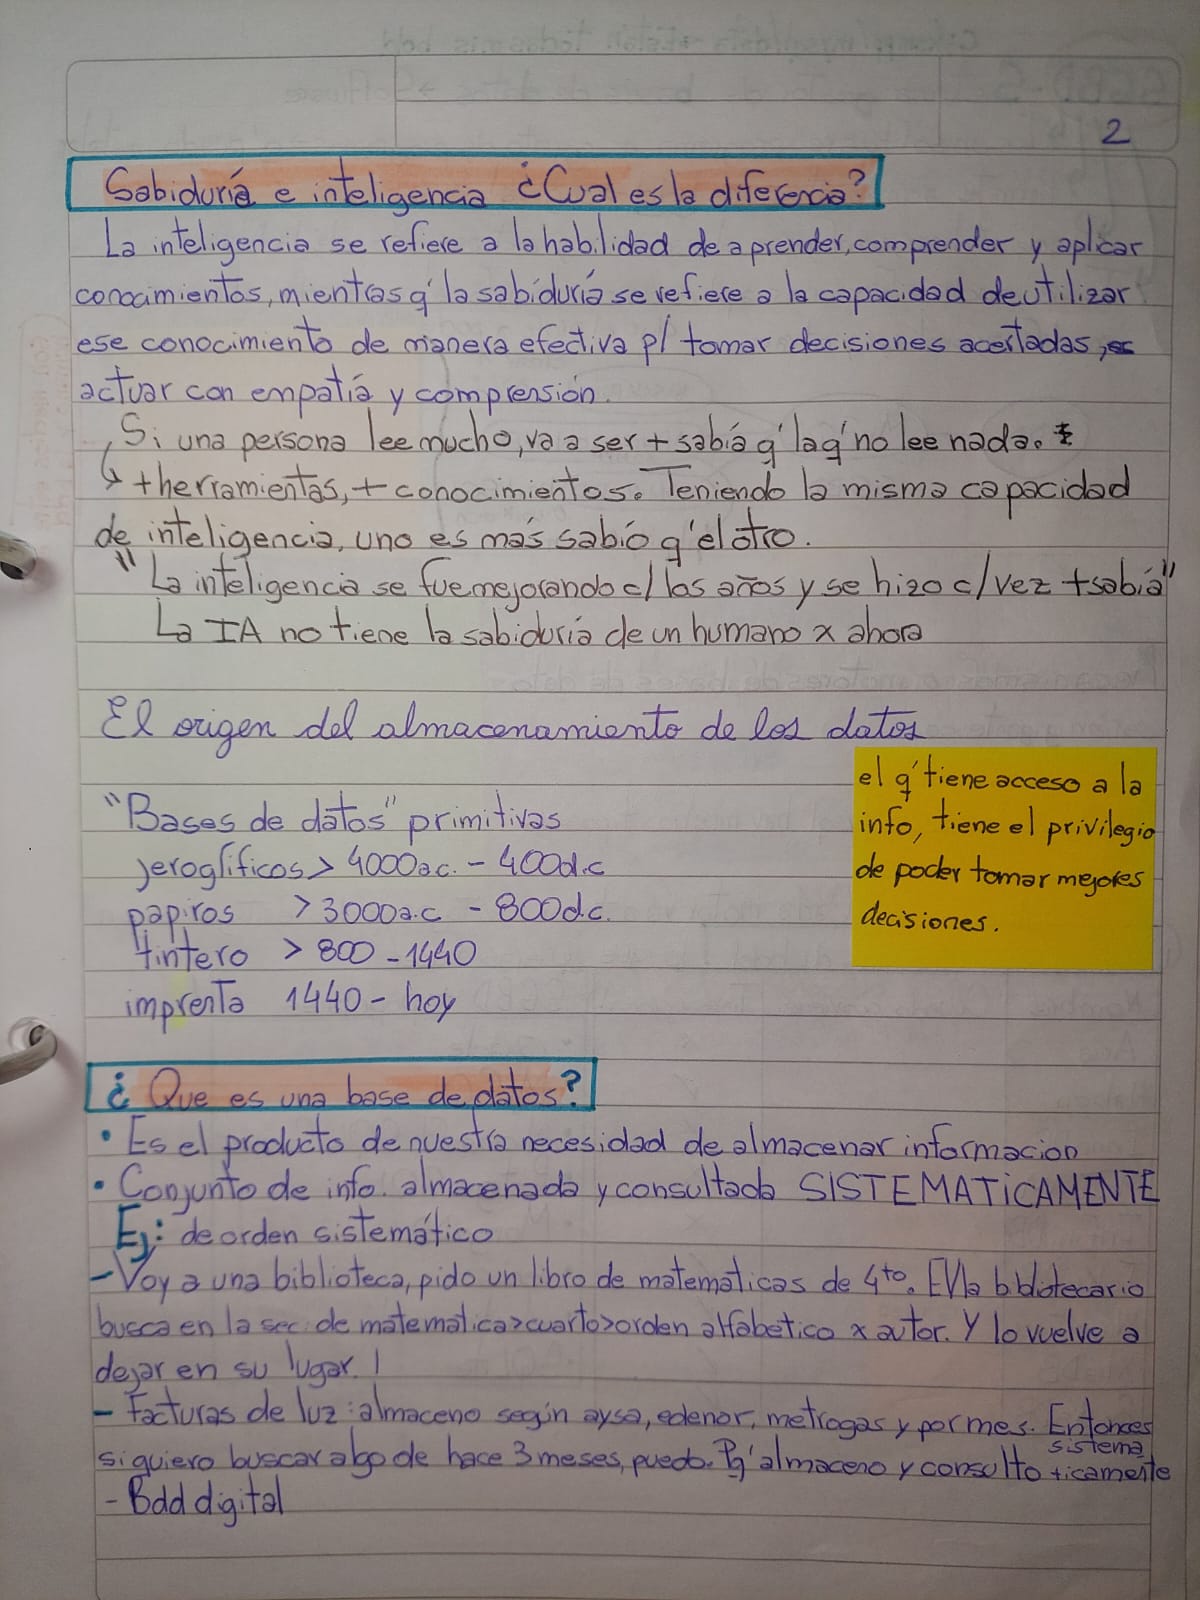 2
Sabiduría e inteligencia ¿Cual es la diferencia?
La inteligencia se refiere a la habilidad de aprender, comprender y aplicar
conocimientos, mientras q' la sabiduría se refiere a la capacidad de utilizar
ese conocimiento de manera efectiva p/ tomar decisiones acertadas,
actuar con empatía y comprensión.
Si una persona lee mucho, va a ser + sabia q' la q' no lee nada.
↳ + herramientas, + conocimientos. Teniendo la misma capacidad
de inteligencia, uno es más sabio q' el otro.
"La inteligencia se fue mejorando c/ los años y se hizo c/vez + sabia"
La IA no tiene la sabiduría de un humano x ahora
El origen del almacenamiento de los datos
"Bases de datos" primitivas
jeroglíficos > 4000a.c. - 400d.c
papiros > 3000a.c - 800d.c.
tintero > 800 - 1440
imprenta 1440 - hoy
el q' tiene acceso a la
info, tiene el privilegio
de poder tomar mejores
decisiones.
¿Que es una base de datos?
• Es el producto de nuestra necesidad de almacenar informacion
• Conjunto de info. almacenada y consultada SISTEMATiCAMENTE
Ej: de orden sistemático
- Voy a una biblioteca, pido un libro de matemáticas de 4to. El/la bibliotecario
busca en la sec. de matematica>cuarto>orden alfabetico x autor. Y lo vuelve a
dejar en su lugar.
- Facturas de luz: almaceno según aysa, edenor, metrogas y por mes. Entonces
si quiero buscar algo de hace 3 meses, puedo. Pq' almaceno y consulto sistematicamente
- Bdd digital